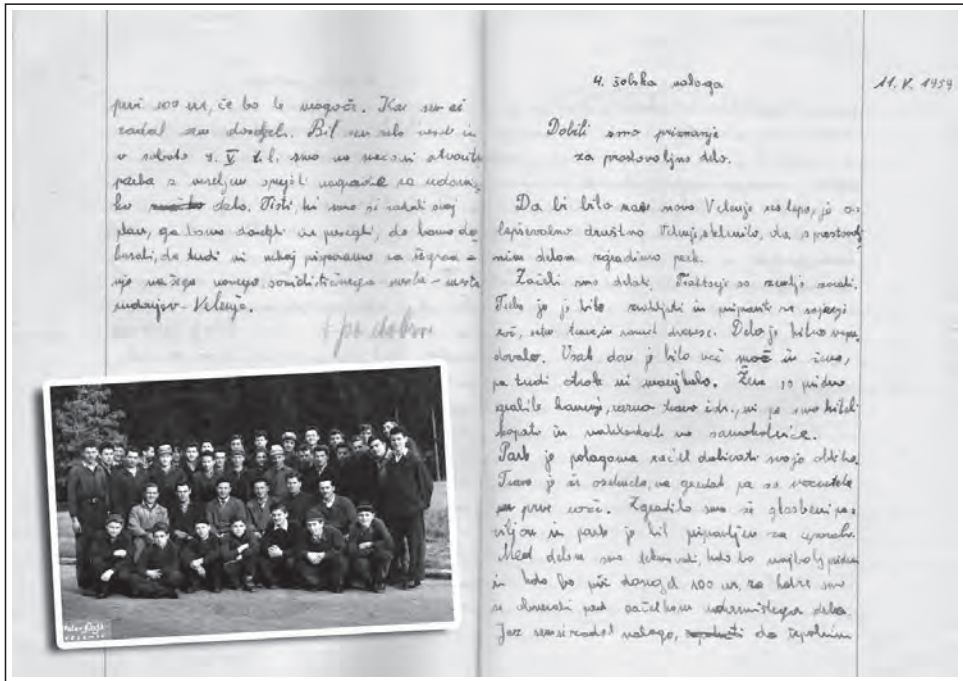 prvi 100 ur, če bo le mogoče. Kar sem si
zadal sem dosegel. Bil sem zelo vesel in
v soboto 9. V. t.l. smo na večeri otvoritve
parka z veseljem sprejeli nagrade za udarniš-
ko delo. Tisti, ki smo si zadali svoj
plan, ga bomo dosegli in presegli, da bomo do-
kazali, da tudi mi nekaj pripomoremo za izgrad-
njo našega novega socialističnega mesta - mesta
rudarjev - Velenje.
4. šolska naloga
11. V. 1959
Dobili smo priznanje
za prostovoljno delo.
Da bi bilo naše novo Velenje res lepo, je o-
lepševalno društvo Velenje sklenilo, da s prostovolj-
nim delom zgradimo park.
Začeli smo delati. Traktorji so zemljo zorali.
Treba jo je bilo razkopati in pripraviti za sajenje
rož, setev trave in raznih dreves. Delo je hitro napre-
dovalo. Vsak dan je bilo več mož in žena,
pa tudi otrok ni manjkalo. Žene so pridno
grabile kamenje, razno travo i.dr., mi pa smo hiteli
kopati in nakladati na samokolnice.
Park je polagoma začel dobivati svojo obliko.
Trava je že ozelenela, na gredah pa so vzcvetele
prve rože. Zgradili smo še glasbeni pa-
viljon in park je bil pripravljen za uporabo.
Med delom smo tekmovali, kdo bo najbolj priden
in kdo bo prvi dosegel 100 ur, za katere smo
se obvezali pred začetkom udarniškega dela.
Jaz sem si zadal nalogo, da izpolnim